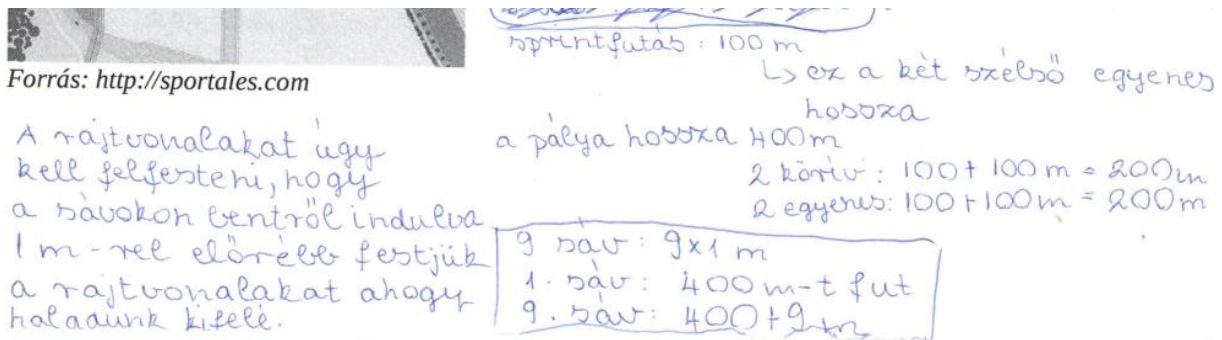 Forrás: http://sportales.com
A rajtvonalakat úgy
kell felfesteni, hogy
a sávokon bentről indulva
1 m-rel előrébb festjük
a rajtvonalakat ahogy
haladunk kifelé.
sprintfutás: 100 m
↳ ez a két szélső egyenes
hossza
a pálya hossza 400m
2 körív: 100+100 m = 200m
2 egyenes: 100+100m = 200m
9 sáv: 9x1 m
1. sáv: 400 m-t fut
9. sáv: 400+9 m